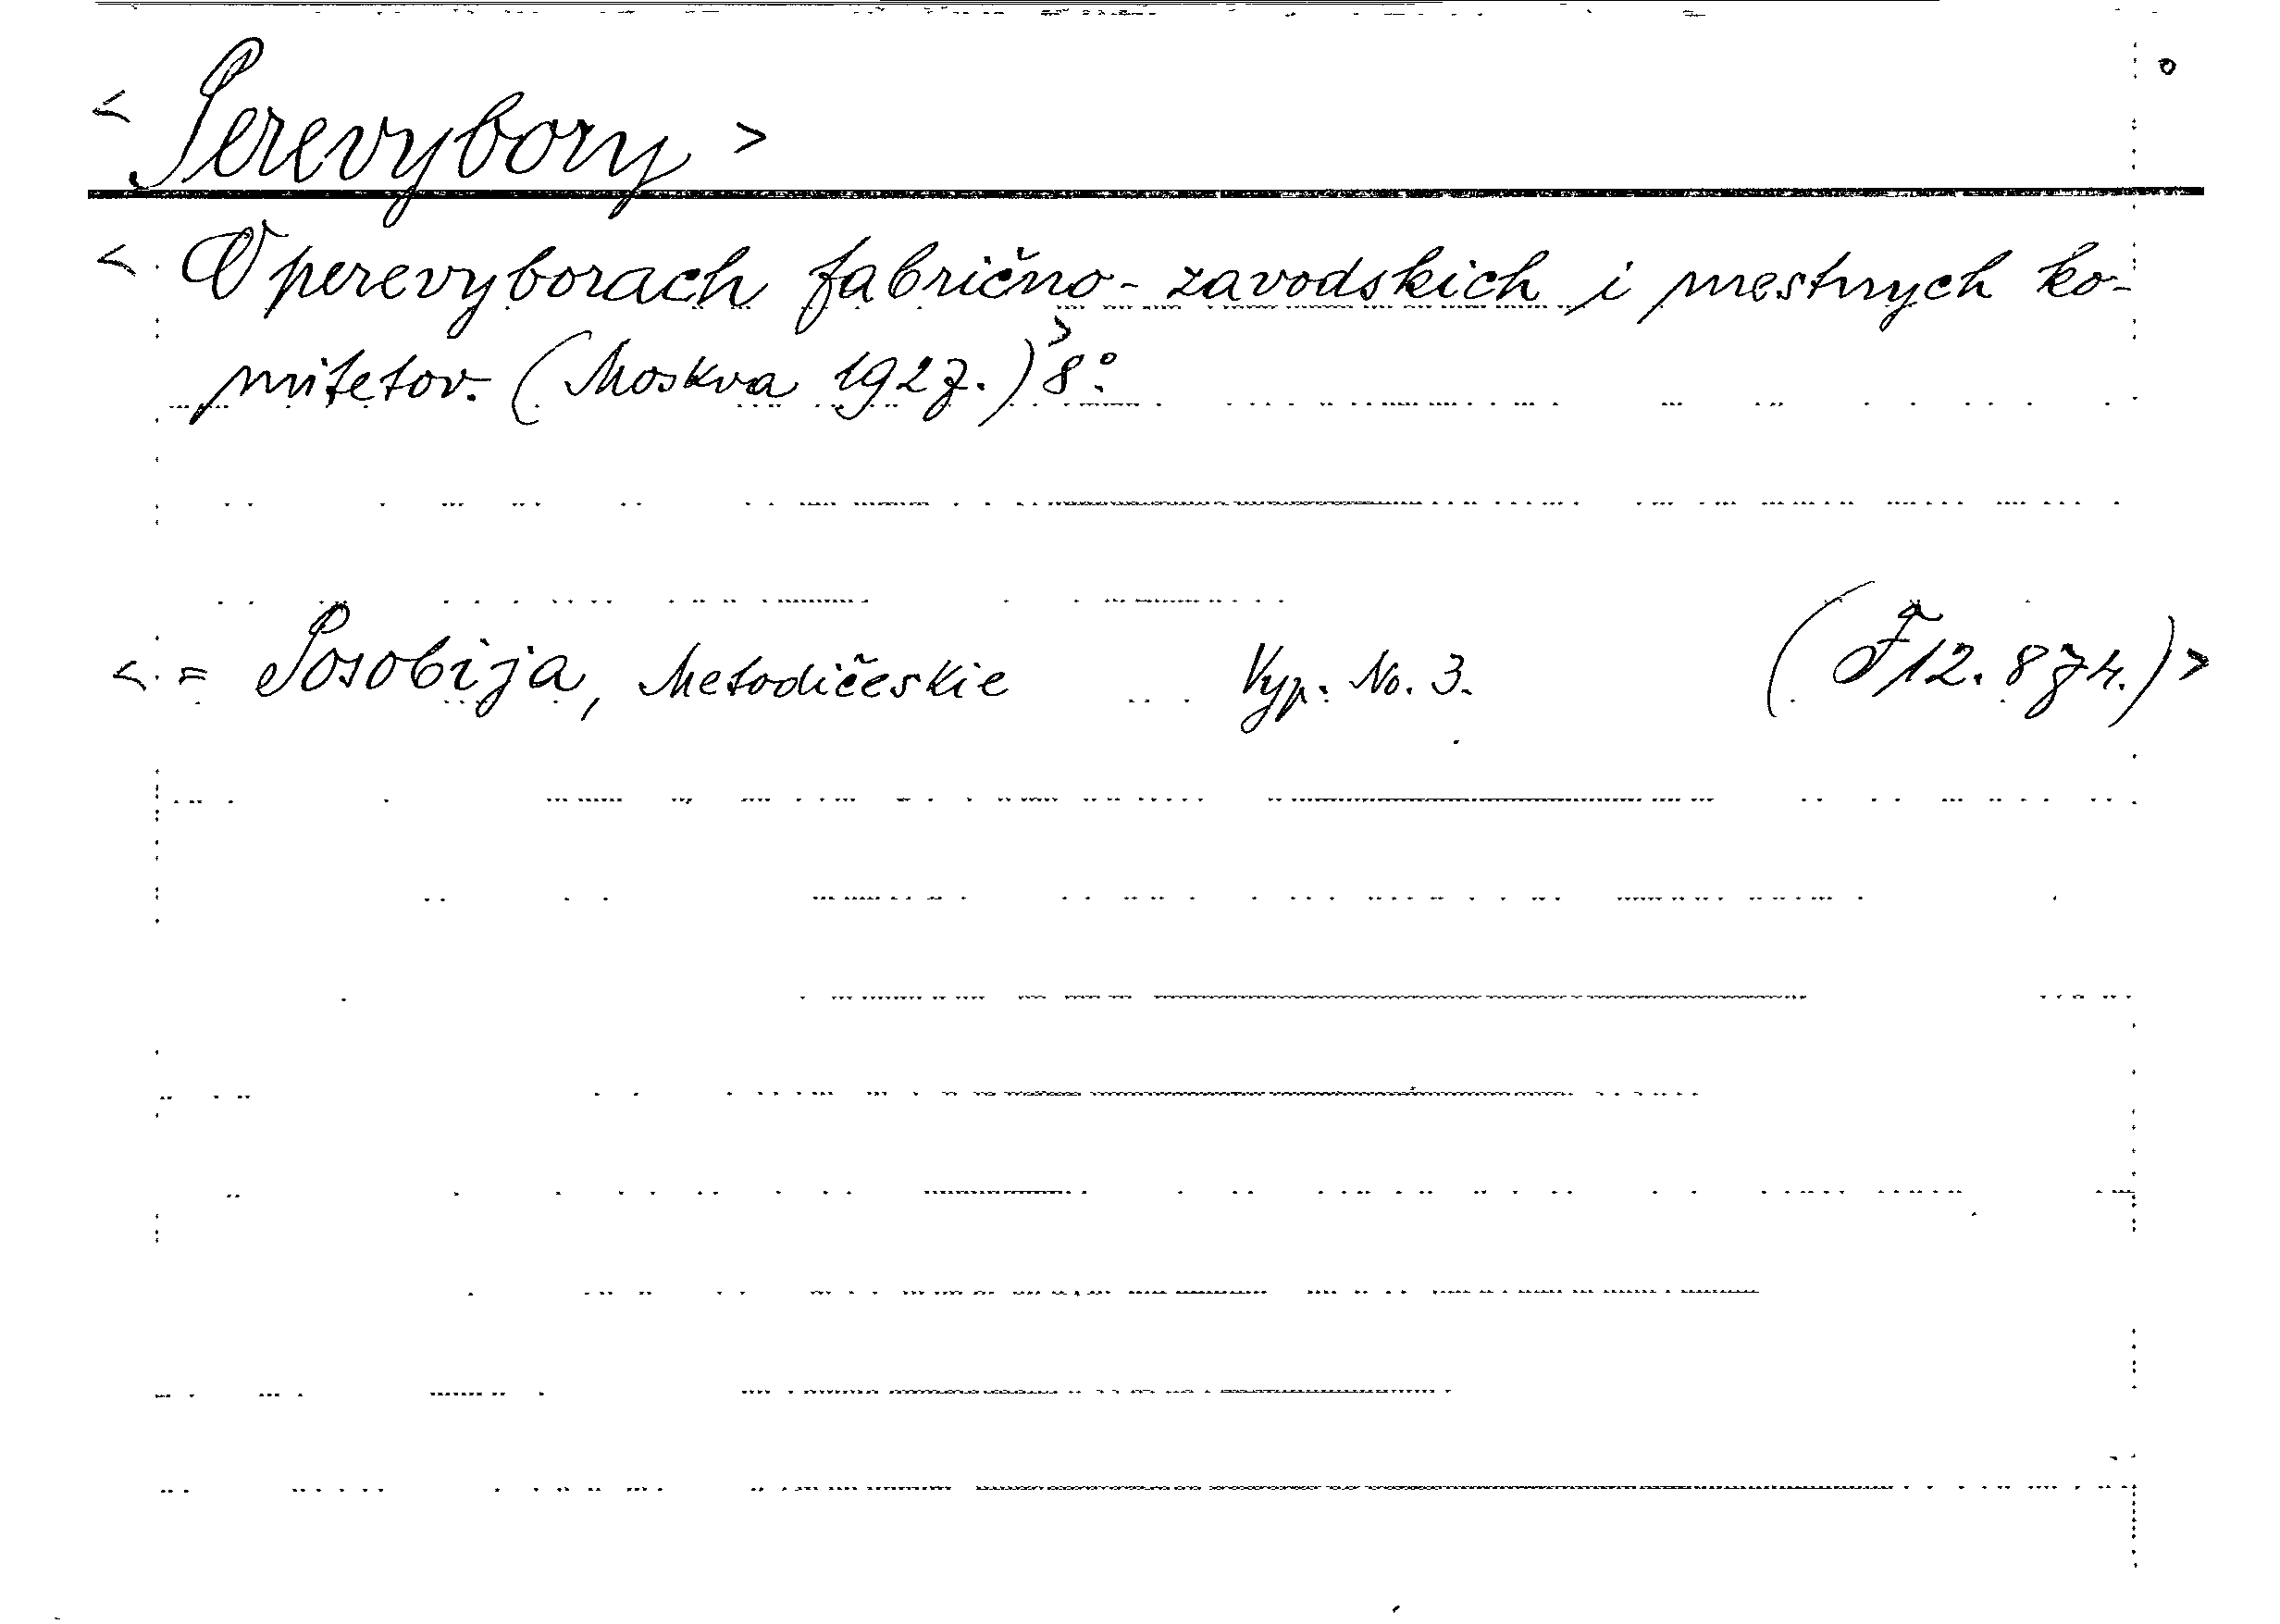 < Perevybory >
< O perevyborach fabrično-zavodskich i mestnych ko-
mitetov. (Moskva 1927.) > 8°.
< = Posobija, Metodičeskie Vyp. No. 3. (F 12. 874.) >